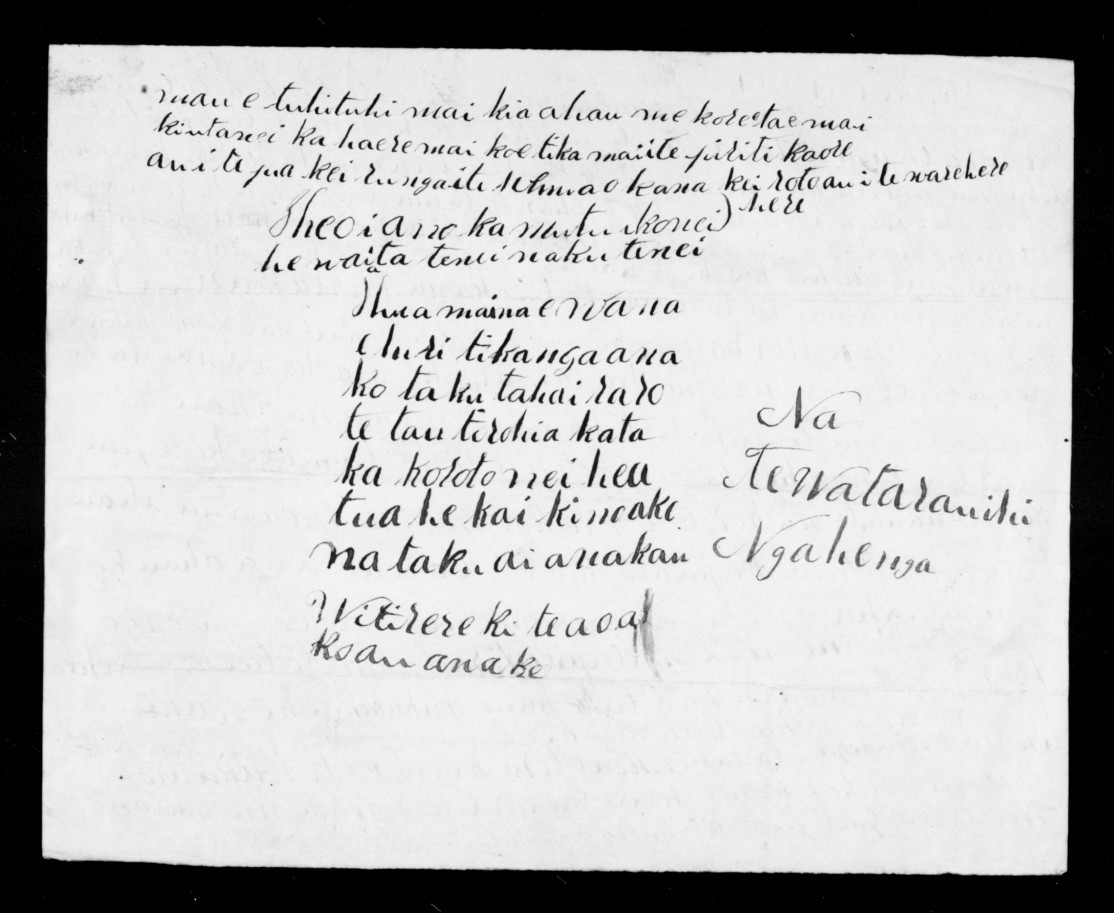 mau e tuhituhi mai kia ahau me kore e tae mai
ki ka haere mai koe tika mai i te piriti kaore
au i te pa kei runga i te o kana kei roto au i te warehere
here
heoi ano ka mutu i konei
he waiata tenei naku tenei
maina e wana
e huri tikanga ana
ko taku taha i raro
te tau tirohia kata
ka koroto nei hea
tua he kai kineake
na taku ai anakau
Witirere ki te aoa
ko au anake
Na
te Wataraui hi
Ngahenga